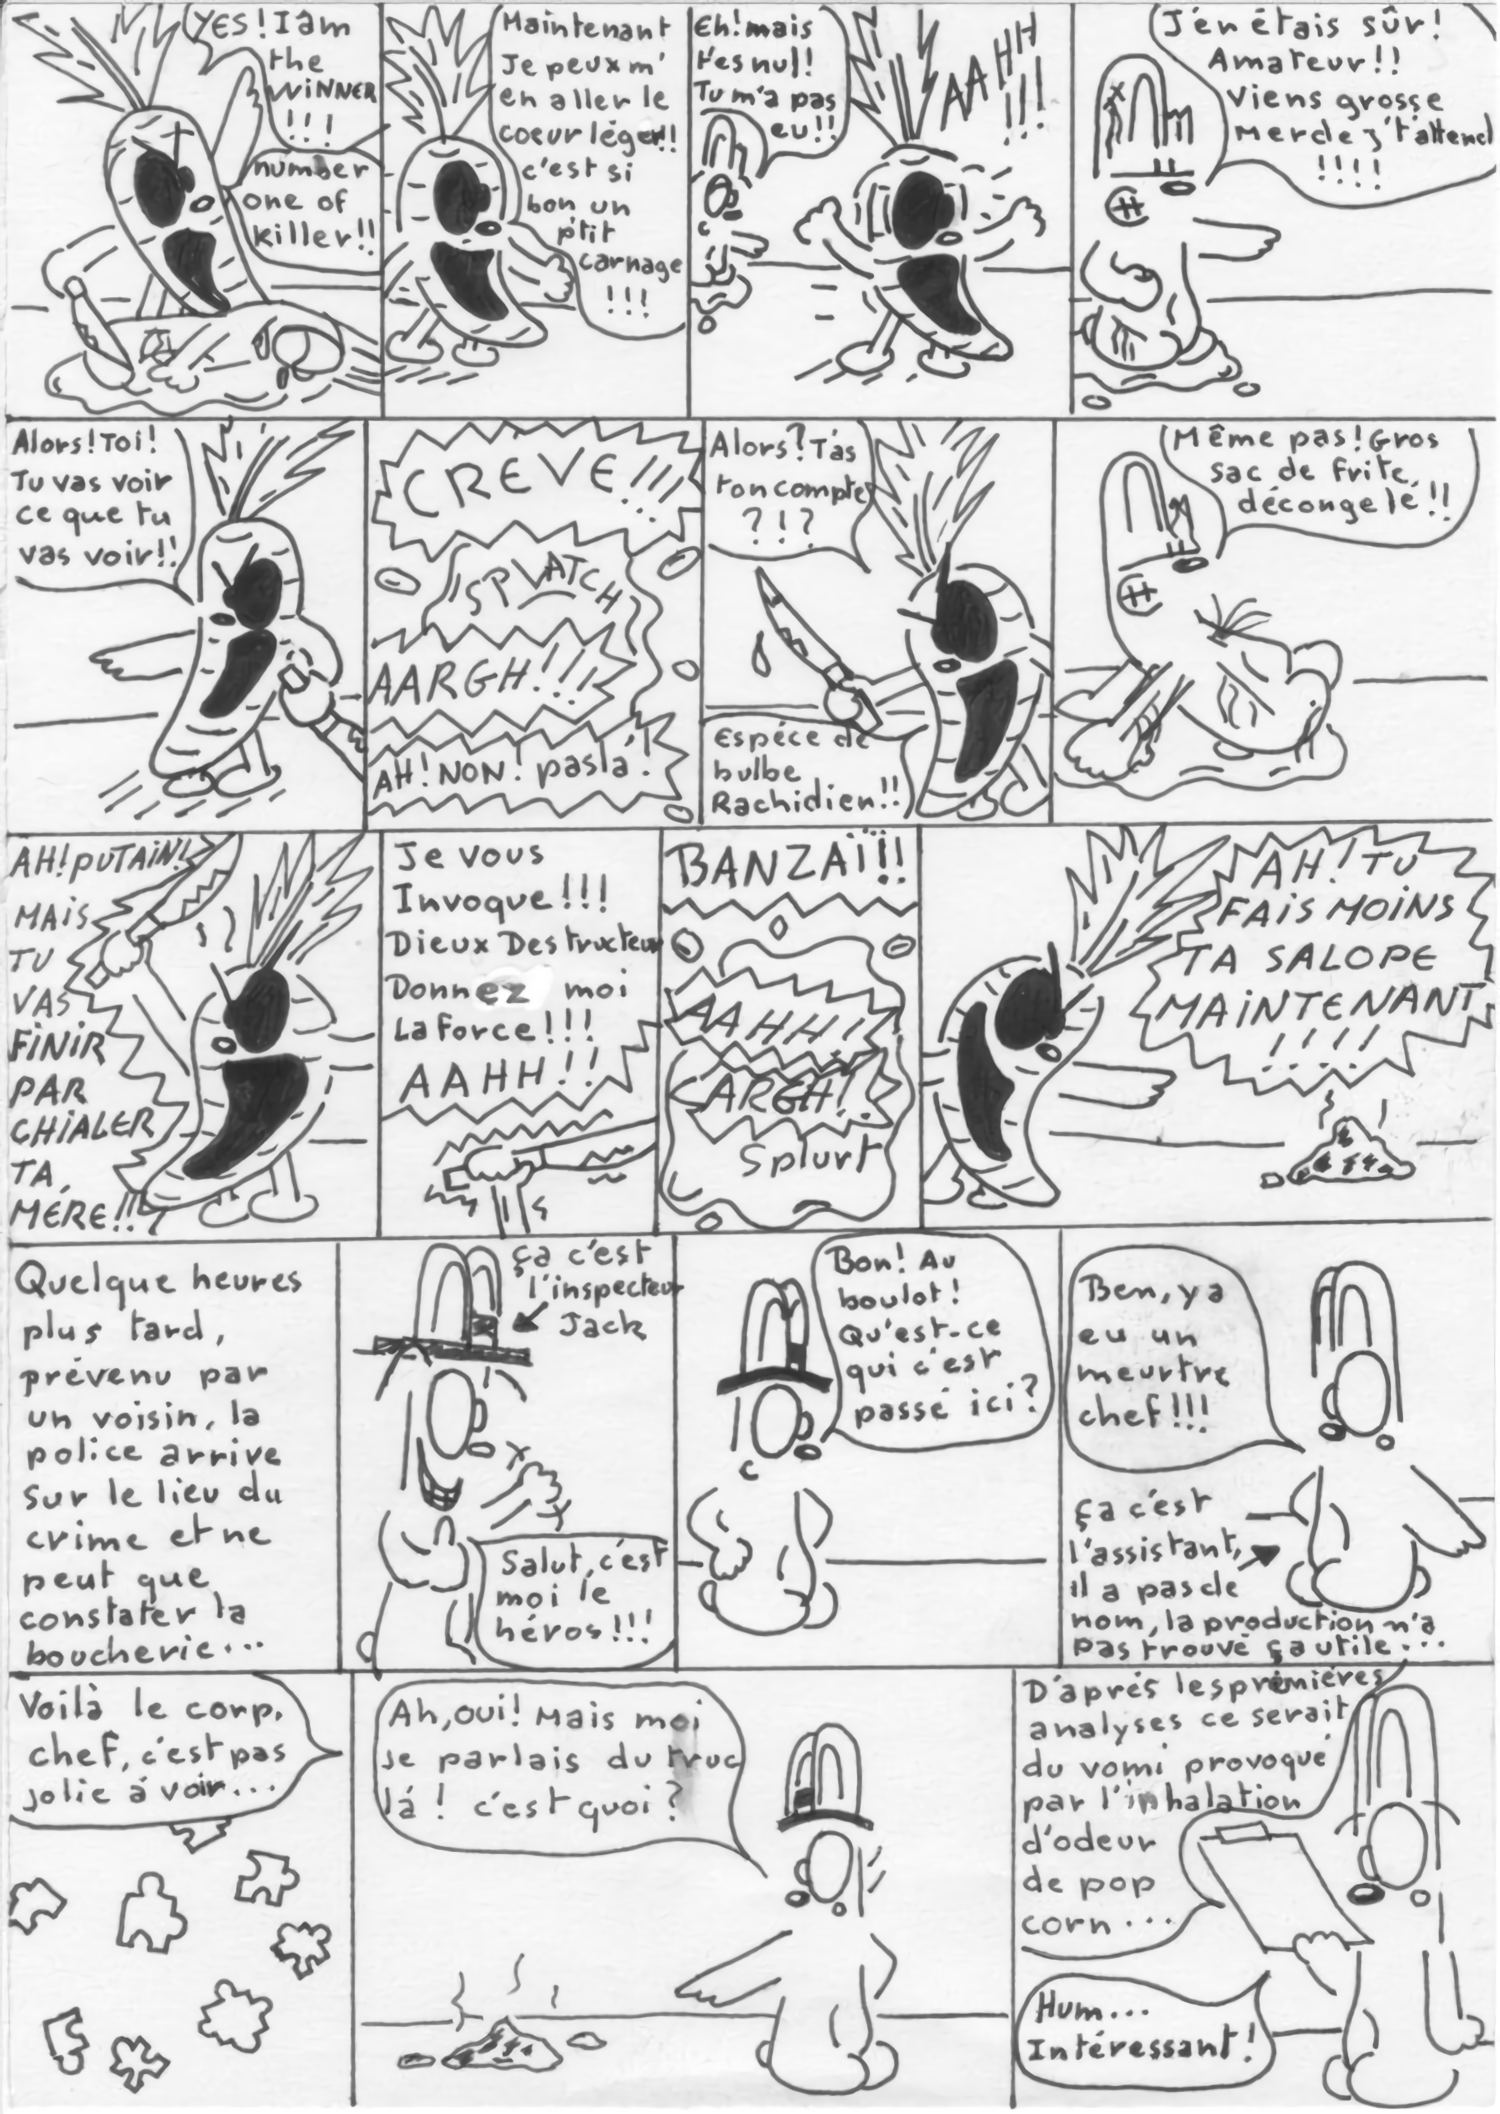 YES! I am
the
WiNNER
!!!
number
one of
Killer!!
Maintenant
Je peux m'
en aller le
coeur léger!!
c'est si
bon un
p'tit
carnage
!!!
Eh! mais
t'es nul!
Tu m'a pas
eu!!
AAHH
!!!
J'en étais sûr!
Amateur!!
Viens grosse
Merde j't'attend
!!!!
Alors! Toi!
Tu vas voir
ce que tu
vas voir!!
CREVE!!!
SPLATCH
AARGH!!!
AH! NON! pas là!
Alors? T'as
ton compte
?!?
Espéce de
bulbe
Rachidien!!
Même pas! Gros
sac de frite,
décongelé!!
AH! PUTAiN!
MAiS
TU
VAS
FiNiR
PAR
CHiALER
TA
MÉRE!!
Je vous
Invoque!!!
Dieux Destructeur
Donnez moi
La force!!!
AAHH!!
BANZAÏ!!
AAHH!!
ARGH!
Splurt
AH! TU
FAiS MOiNS
TA SALOPE
MAiNTENANT
!!!!
Quelque heures
plus tard,
prévenu par
un voisin, la
police arrive
sur le lieu du
crime et ne
peut que
constater la
boucherie...
ça c'est
l'inspecteur
Jack
Salut, c'est
moi le
héros!!!
Bon! Au
boulot!
Qu'est-ce
qui c'est
passé ici?
Ben, y a
eu un
meurtre
chef!!!
ça c'est
l'assistant,
il a pas de
nom, la production n'a
pas trouvé ça utile...
Voilà le corp,
chef, c'est pas
jolie á voir...
Ah, oui! Mais moi
je parlais du truc
lá! c'est quoi?
D'aprés les prémiéres
analyses ce serait
du vomi provoqué
par l'inhalation
d'odeur
de pop
corn...
Hum...
Intéressant!